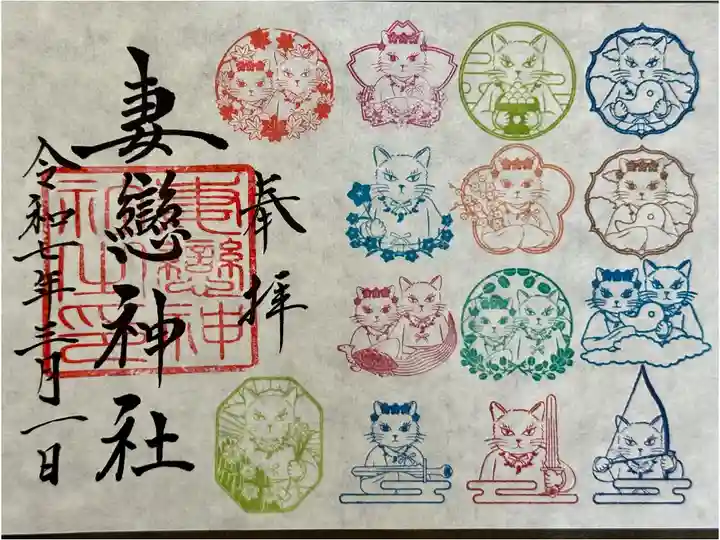 奉拝
妻戀神社
妻戀神社之印
令和七年 三月一日